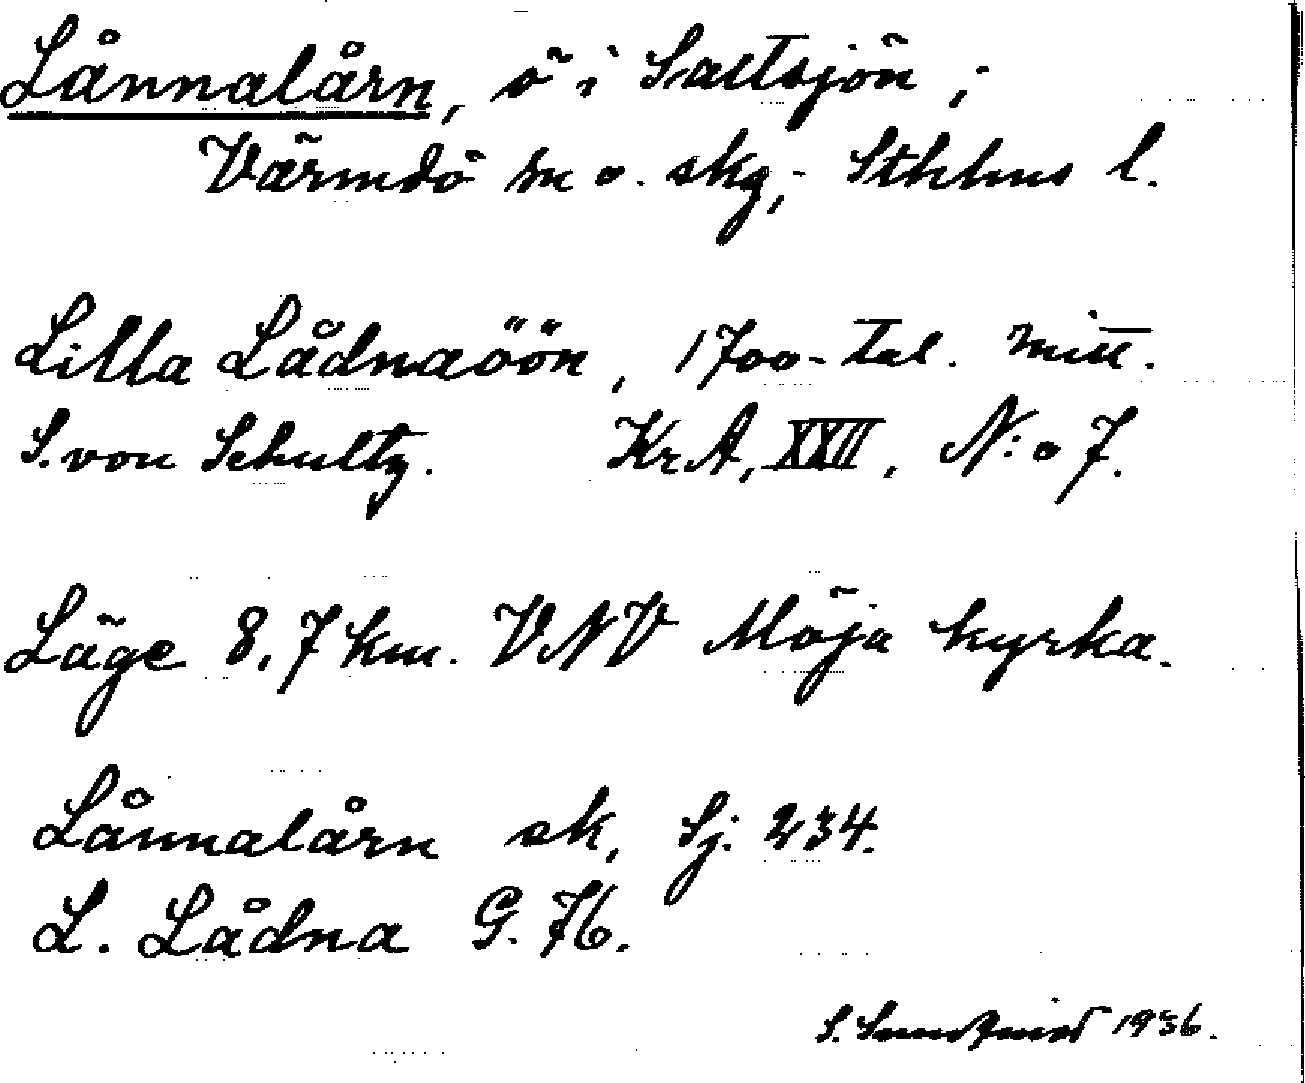 Lånnalårn, ö i Saltsjön,
Värmdö sn o. skg, Sthlms l.
Lilla Lådnaöön, 1700-tal. mitt.
S. von Schultz. KrA, XXII, N:o 7.
Läge 8,7 km. VNV Möja kyrka.
Lånnalårn sk, Sj. 234.
L. Lådna G. 76.
S. Sundqvist 1936.